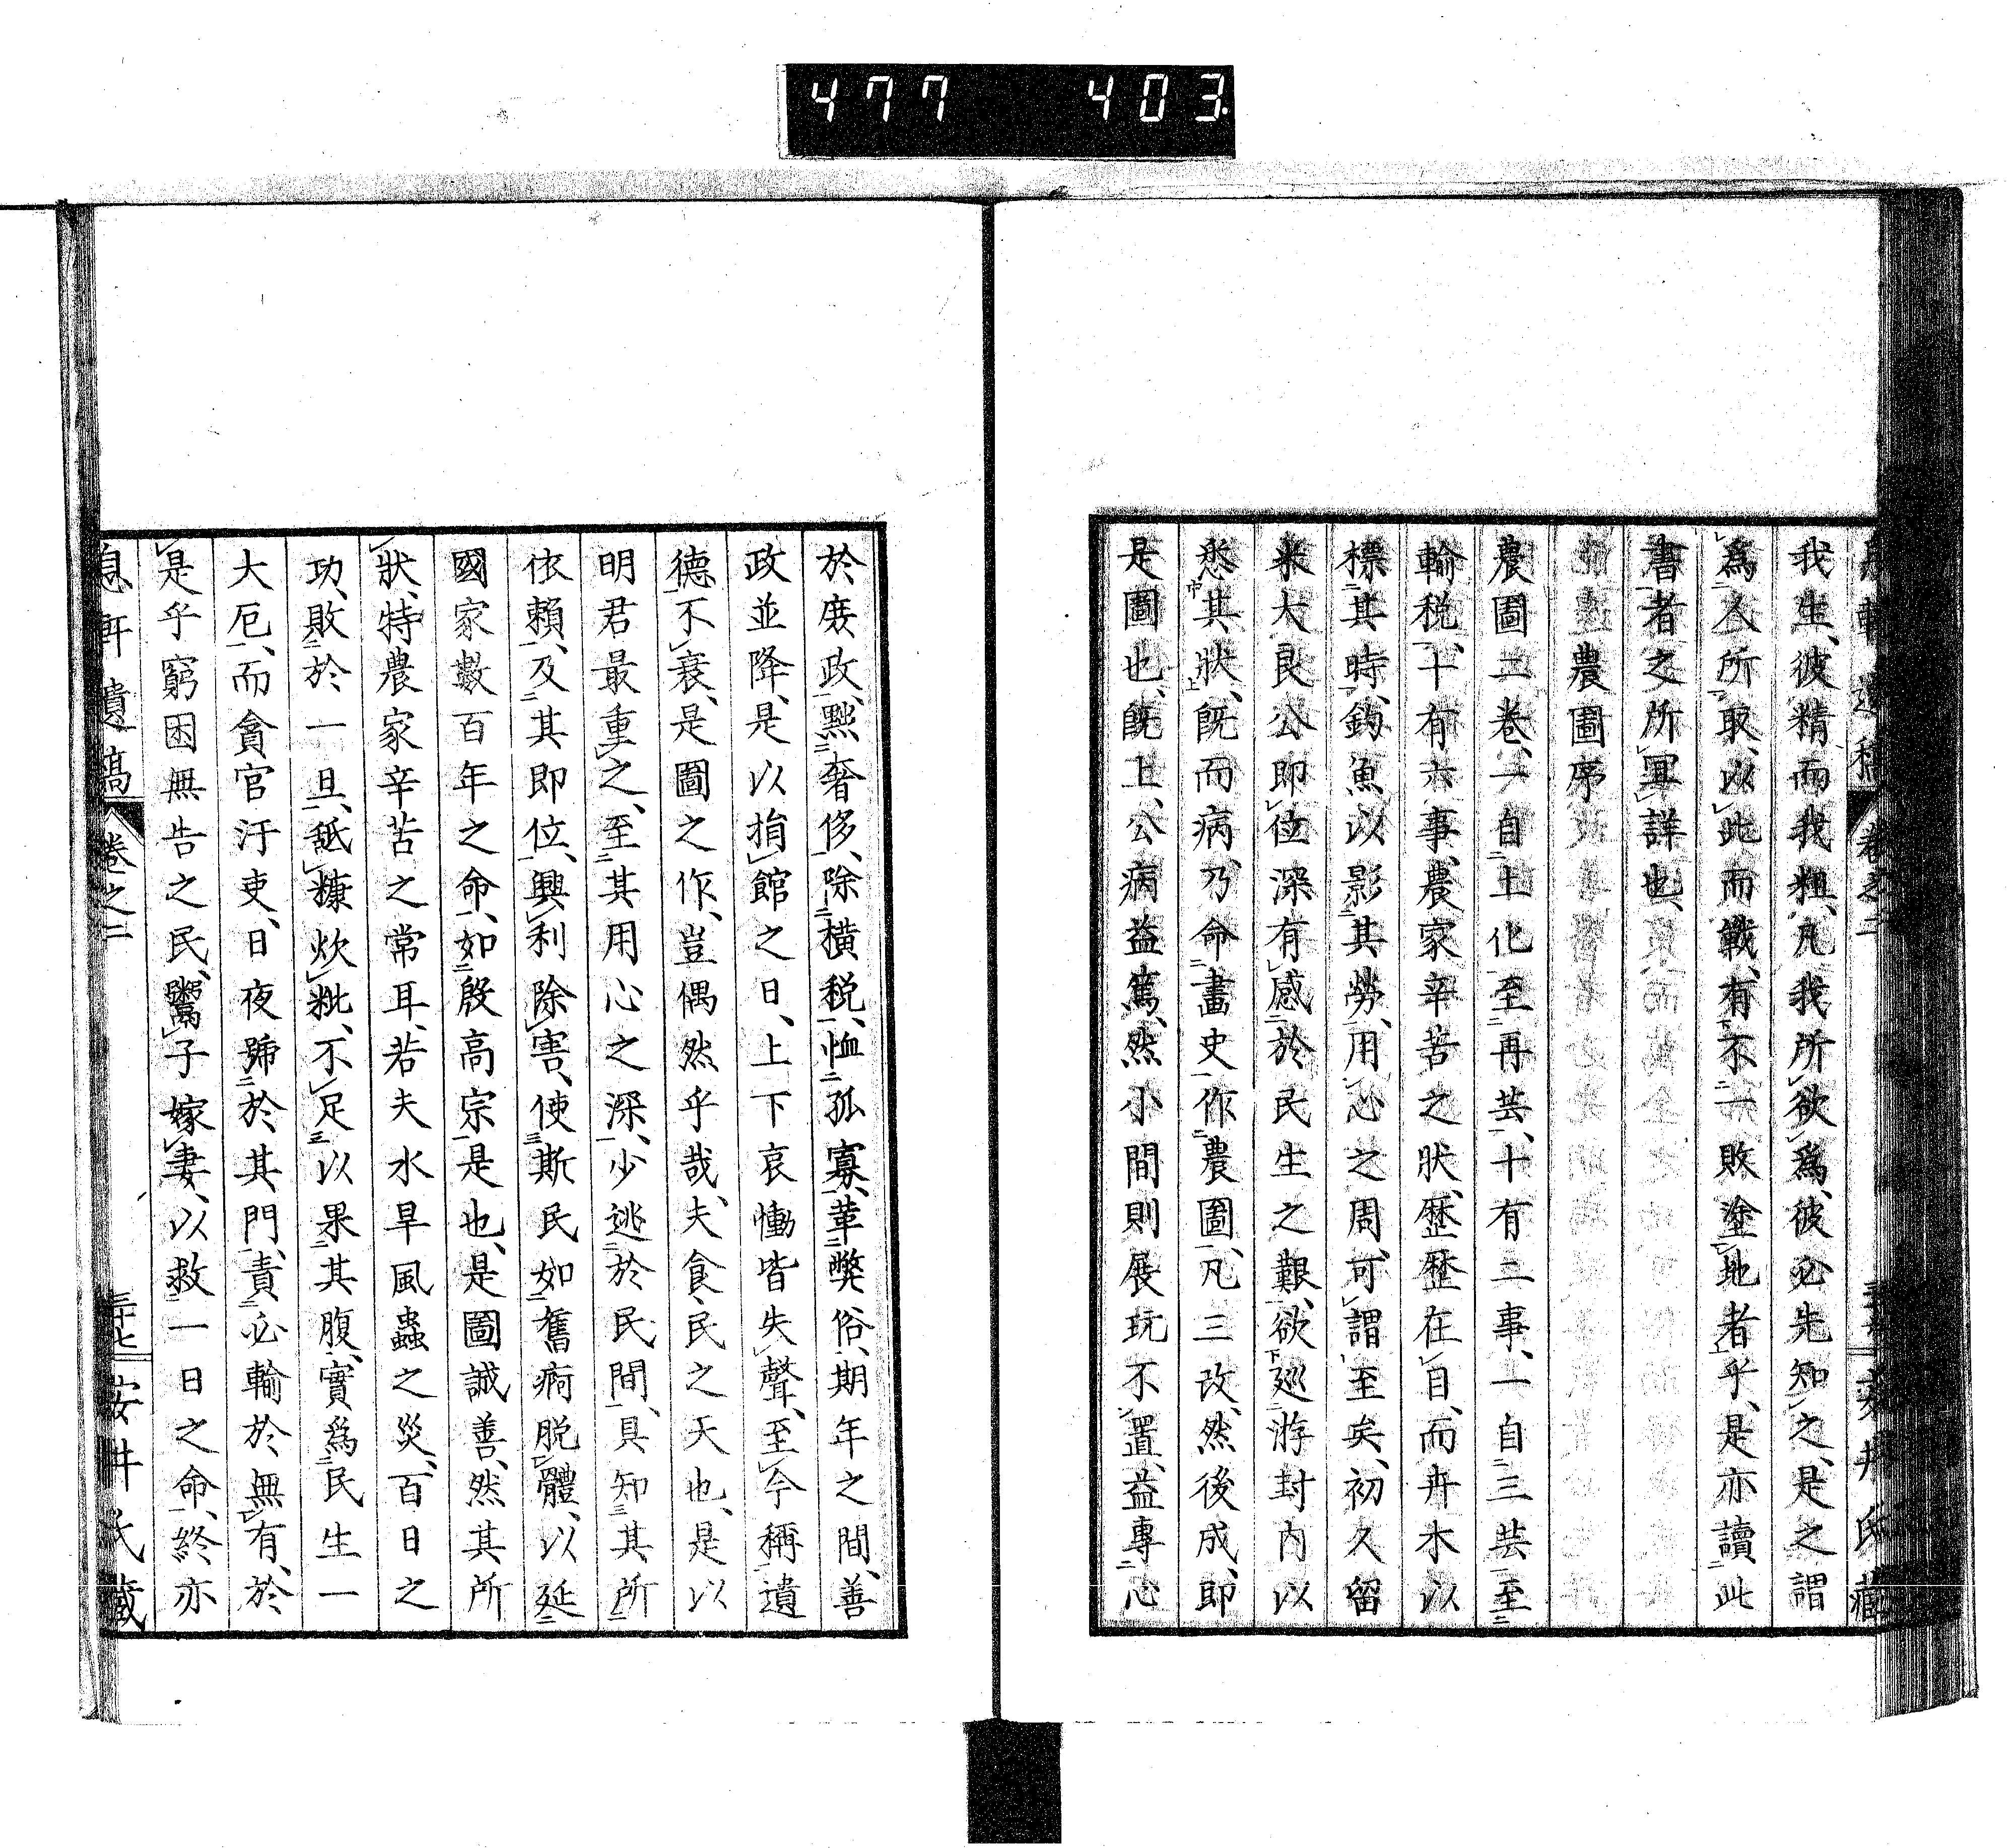 477 403
我生、彼精而我粗、凡我所欲爲、彼必先知之、是之謂
爲人所取、以此而戰、有不一敗塗地者乎、是亦讀此
書者之所宜詳也、
農圖序
農圖二卷、一自土化至再芸、十有二事、一自三芸至
輸税、十有六事、農家辛苦之狀、歷歷在目、而卉木以
標其時、鈎魚以影其勞、用心之周、可謂至矣、初久留
米大良公即位深有感於民生之艱、欲巡游封内以
悉其狀、既而病、乃命畫史作農圖、凡三改、然後成、即
是圖也、既上、公病益篤、然小間則展玩不置、益專心
於庶政、黜奢侈、除横税、恤孤寡、革弊俗、期年之間、善
政並降、是以捐館之日、上下哀慟皆失聲、至今稱遺
德不衰、是圖之作、豈偶然乎哉、夫食民之天也、是以
明君最重之、至其用心之深、少逃於民間、具知其所
依賴、及其即位、興利除害、使斯民如舊痾脱體、以延
國家數百年之命、如殷高宗是也、是圖誠善、然其所
狀、特農家辛苦之常耳、若夫水旱風蟲之災、百日之
功、敗於一旦、舐糠炊粃、不足以果其腹、實爲民生一
大厄、而貪官汙吏、日夜號於其門、責必輸於無有、於
是乎窮困無告之民、鬻子嫁妻、以救一日之命、終亦
息軒遺稿 卷之二 三十七 安井氏藏